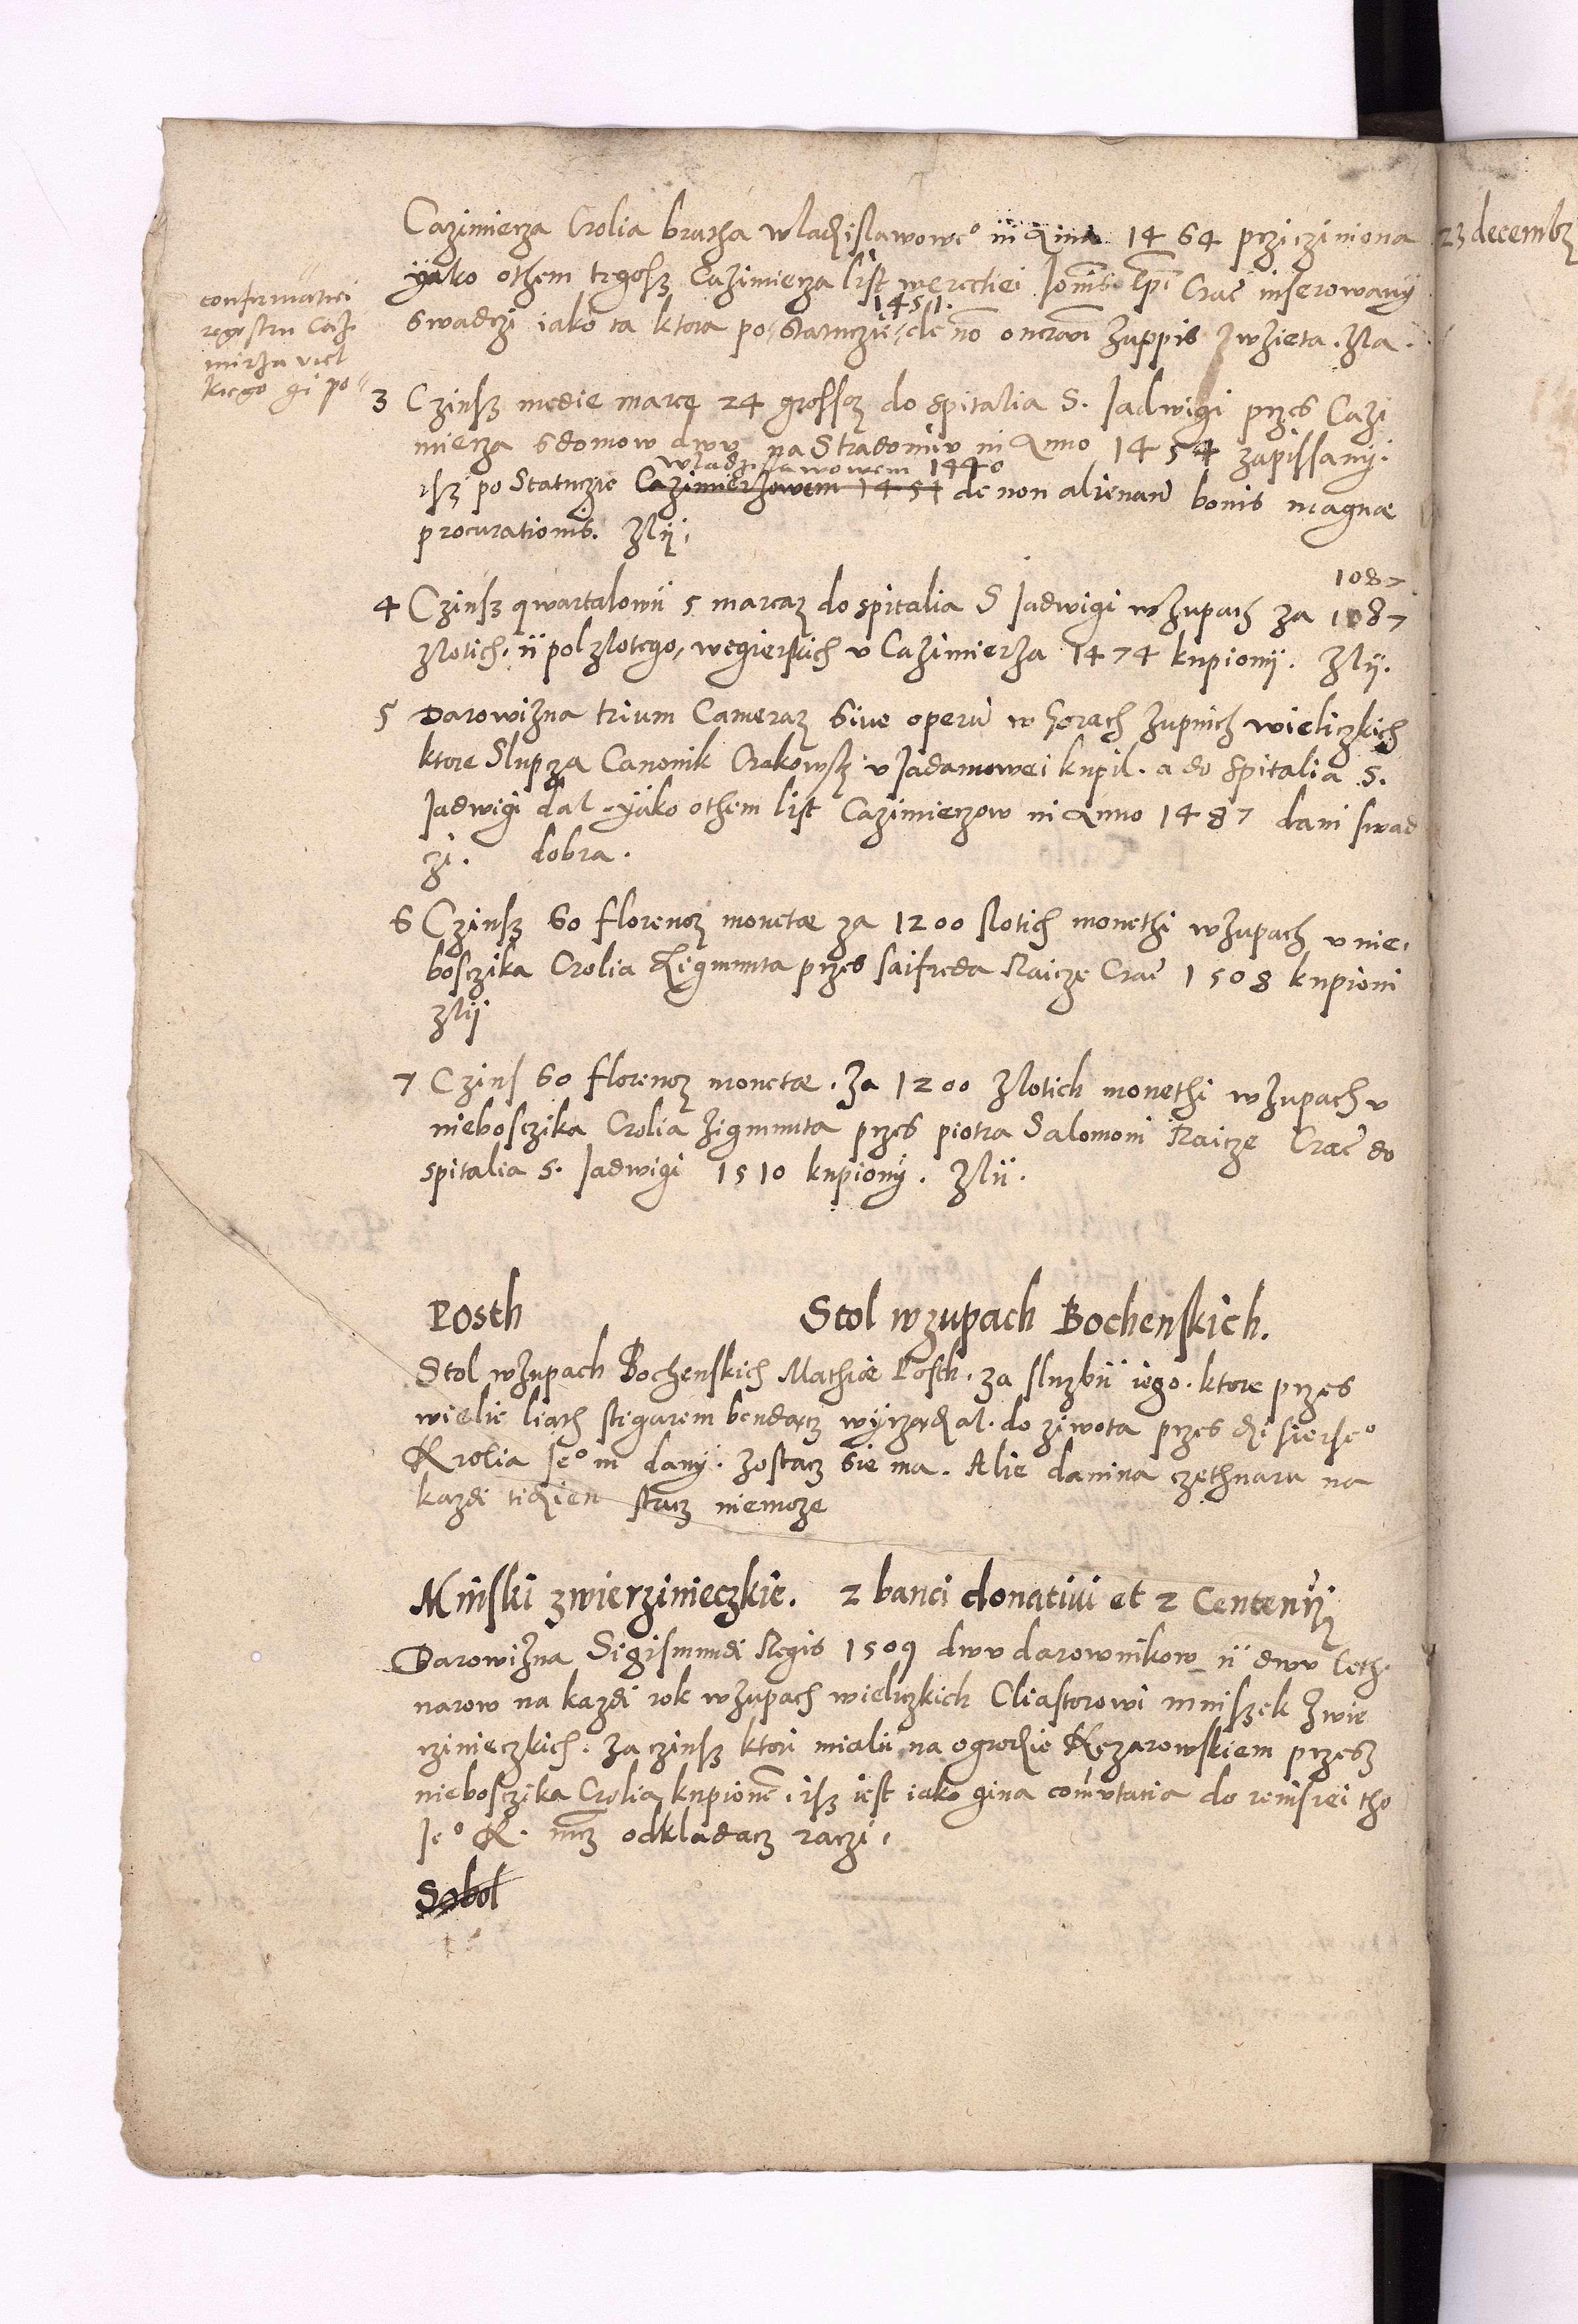 Cazimierza Crolia bratha wladzislawowe° in Anno 1464 przicziniona
23 decembr
yako othem tegosz Cazimierza list werectiei Joannis Epi Crac inserowany
1451.
swadczi iako ta ktora po statuczu de non onerand zuppis wzieta. Zla.
confirmatiei
regestru Cazi
mirza viel
kiego gi po
3 Czinsz medie marce 24 grossor do spitalia S. Jadwigi przes Cazi
mierza sdomow dwu na Stradomiu in Anno 1454 zapissany.
wladzislawowem 1440
isz po Statuczie Cazimierzowem 1451 de non alienand bonis magnae
procurationis. Zly.
1087
4 Czinsz qwartalowy 5 marcar do spitalia S Jadwigi w zupach za 1087
zlotich, y pol zlotego, wegierskich v Cazimierza 1474 kupiony. Zly.
5 Darowizna trium Camerar sive operu w gorach zupnich wieliczkich
ktore Slupcza Canonik Crakowsky v Jadamowei kupil. a do spitalia S.
Jadwigi dal. yako othem list Cazimierzow in Anno 1487 dani swad
czi. dobra.
6 Czinsz 60 florenor monetae za 1200 slotich monethi w zupach v nie,
bosczika Crolia Zigmunta przes saifreda Raicze Crac 1508 kupioni
Zly
7 Czins 60 florenor monetae. za 1200 zlotich monethi w zupach v
niebosczika Crolia Zigmunta przes piotra Salomoni Raicze Crac do
spitalia S. Jadwigi 1510 kupiony. Zly.
Posth Stol w zupach Bochenskich.
Stol w zupach Bochenskich Mathiae Posth. za sluzby iego. ktore przes
wielie liath stigarem bendacz wyrzadzal. do ziwota przes dzisierse°
Krolia Je° m dany. zostacz sie ma. Alie danina czethnaru na
kazdi tidzien stacz niemoze
Mniski zwierzinieczkie. 2 banci donativi et 2 Centenarii
Darowizna Sigismundi Regis 1509 dwu darownikow y dwu Ceth,
narow na kazdi rok w zupach wieliczkich Cliastorowi mniszek zwie
rzinieczkich. za czinsz ktori mialy na ogrodzie Kezarowskiem przesz
niebosczika Crolia kupione. isz iest iako gina comutatia do reinsiei tho
Je° K. mcz odkladacz raczi.
Sobol